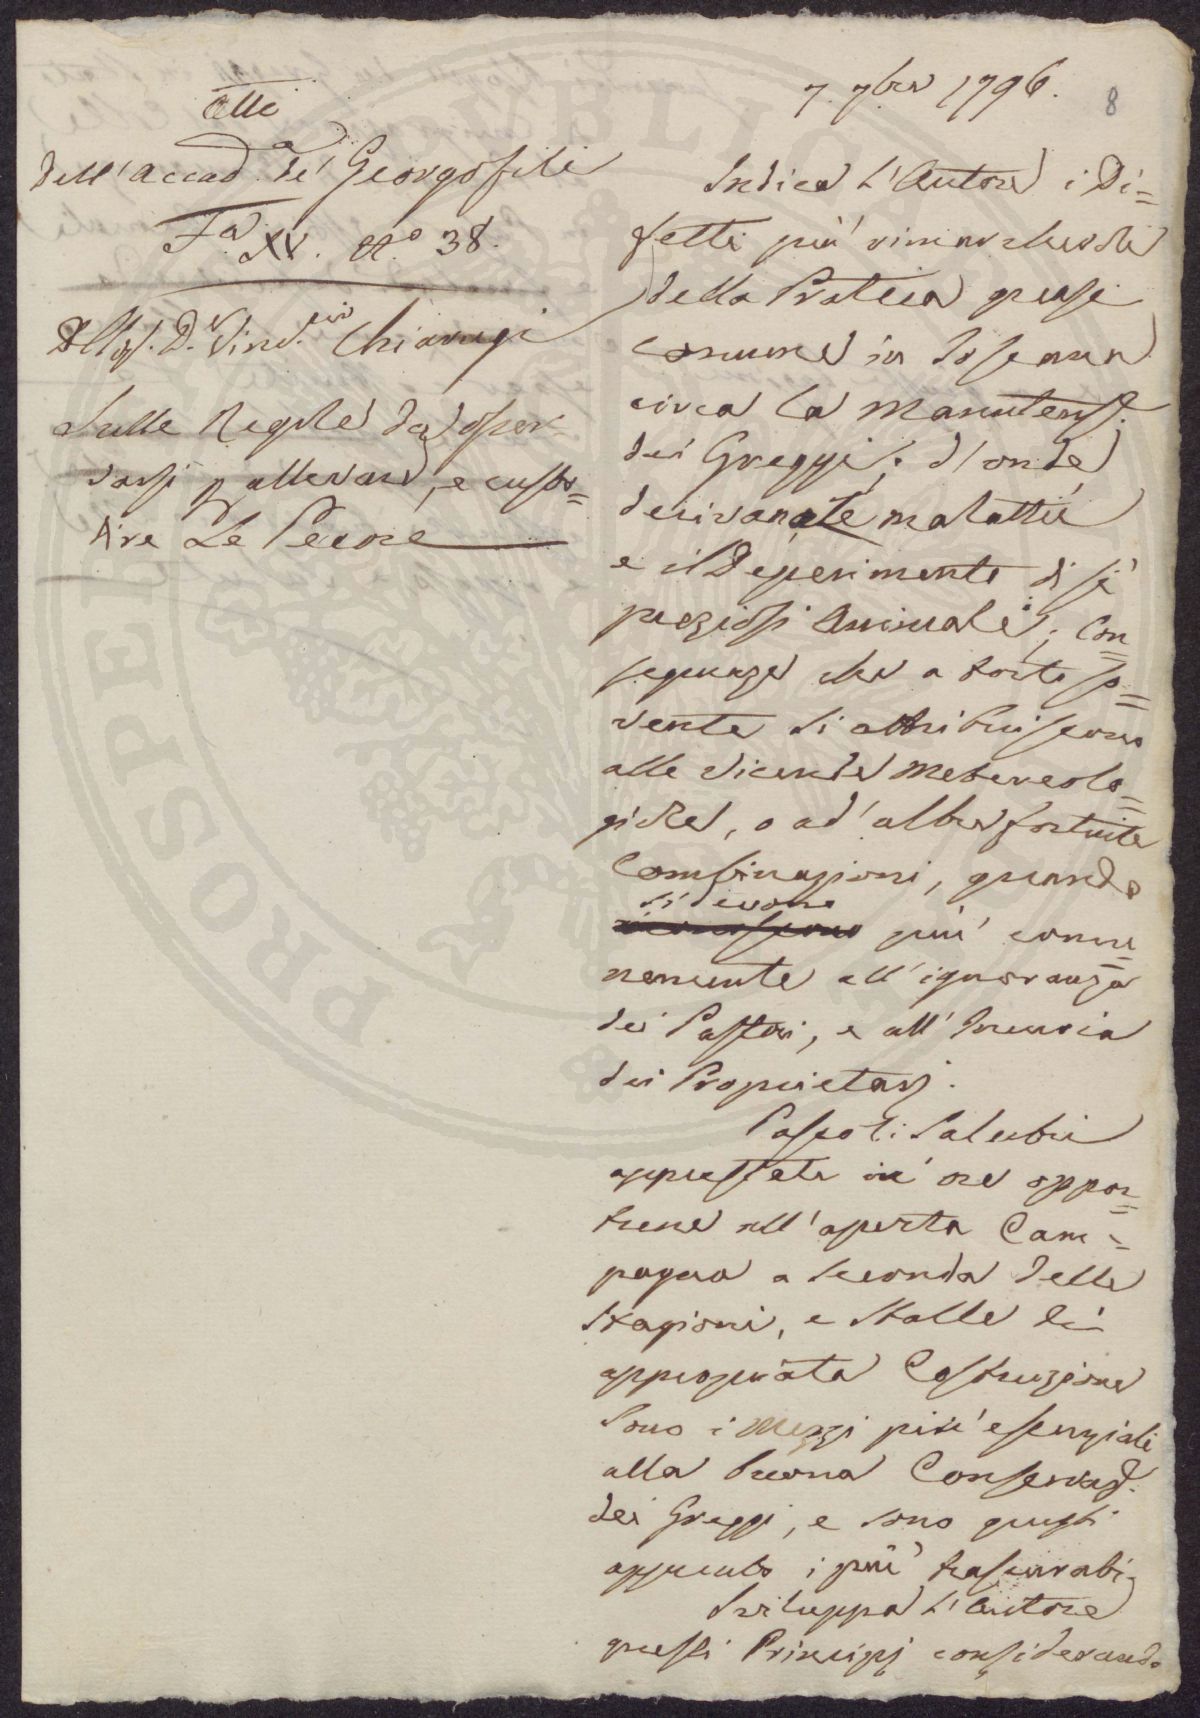 7. 7bre 1796.
8
Atti
dell'Accad.a de' Georgofili
Fa. XV. N.o 38.
Del Sig. D.r Vinc.zio Chiarugi
Sulle Regole da osser-
varsi p allevare, e custo=
dire Le Pecore
Indica L'Autore i Di=
fetti piu' rimarchevoli
della Pratica quasi
comune in Toscana
circa la Manutenz.
dei Greggi; d'onde
derivano le malattie
e il Deperimento di sì
preziosi Animali; Con=
seguenze che a torto so=
vente si attribuiscono
alle vicende Metereolo=
giche, o ad' altre fortuite
Combinazioni, quando
si devono
più comu=
nemente all'ignoranza
dei Pastori, e all'Incuria
dei Proprietarj.
Pascoli Salubri
apprestati in' ore oppor=
tune all'aperta Cam=
pagna a Seconda delle
Stagioni, e Stalle di
appropriata Costruzione
Sono i Mezzi più essenziali
alla buona Conservaz.
dei Greggi, e sono questi
appunto i più trascurati.
Sviluppa L'Autore
questi Principj considerando
PROSPERITA
PUBLICA